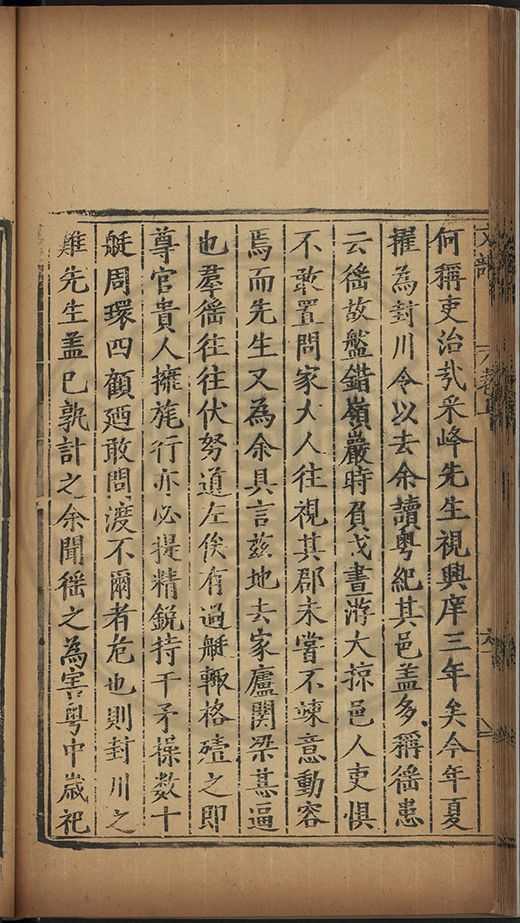 何稱吏治㢤采峰先生視興庠三年矣今年夏
擢為封川令以去余讀粤紀其邑盖多稱徭患
云徭故盤錯嶺巖時負戈晝游大掠邑人吏惧
不敢置問家大人往視其郡未嘗不竦意動容
焉而先生又為余具言兹地去家廬関梁甚逼
也羣徭往往伏弩道左俟有過艇輙格殪之即
尊官貴人擁旄行亦必提精鋭持干矛操数十
艇周環四顧廼敢問渡不爾者危也則封川之
難先生盖已孰計之余聞徭之為害粤中歳祀